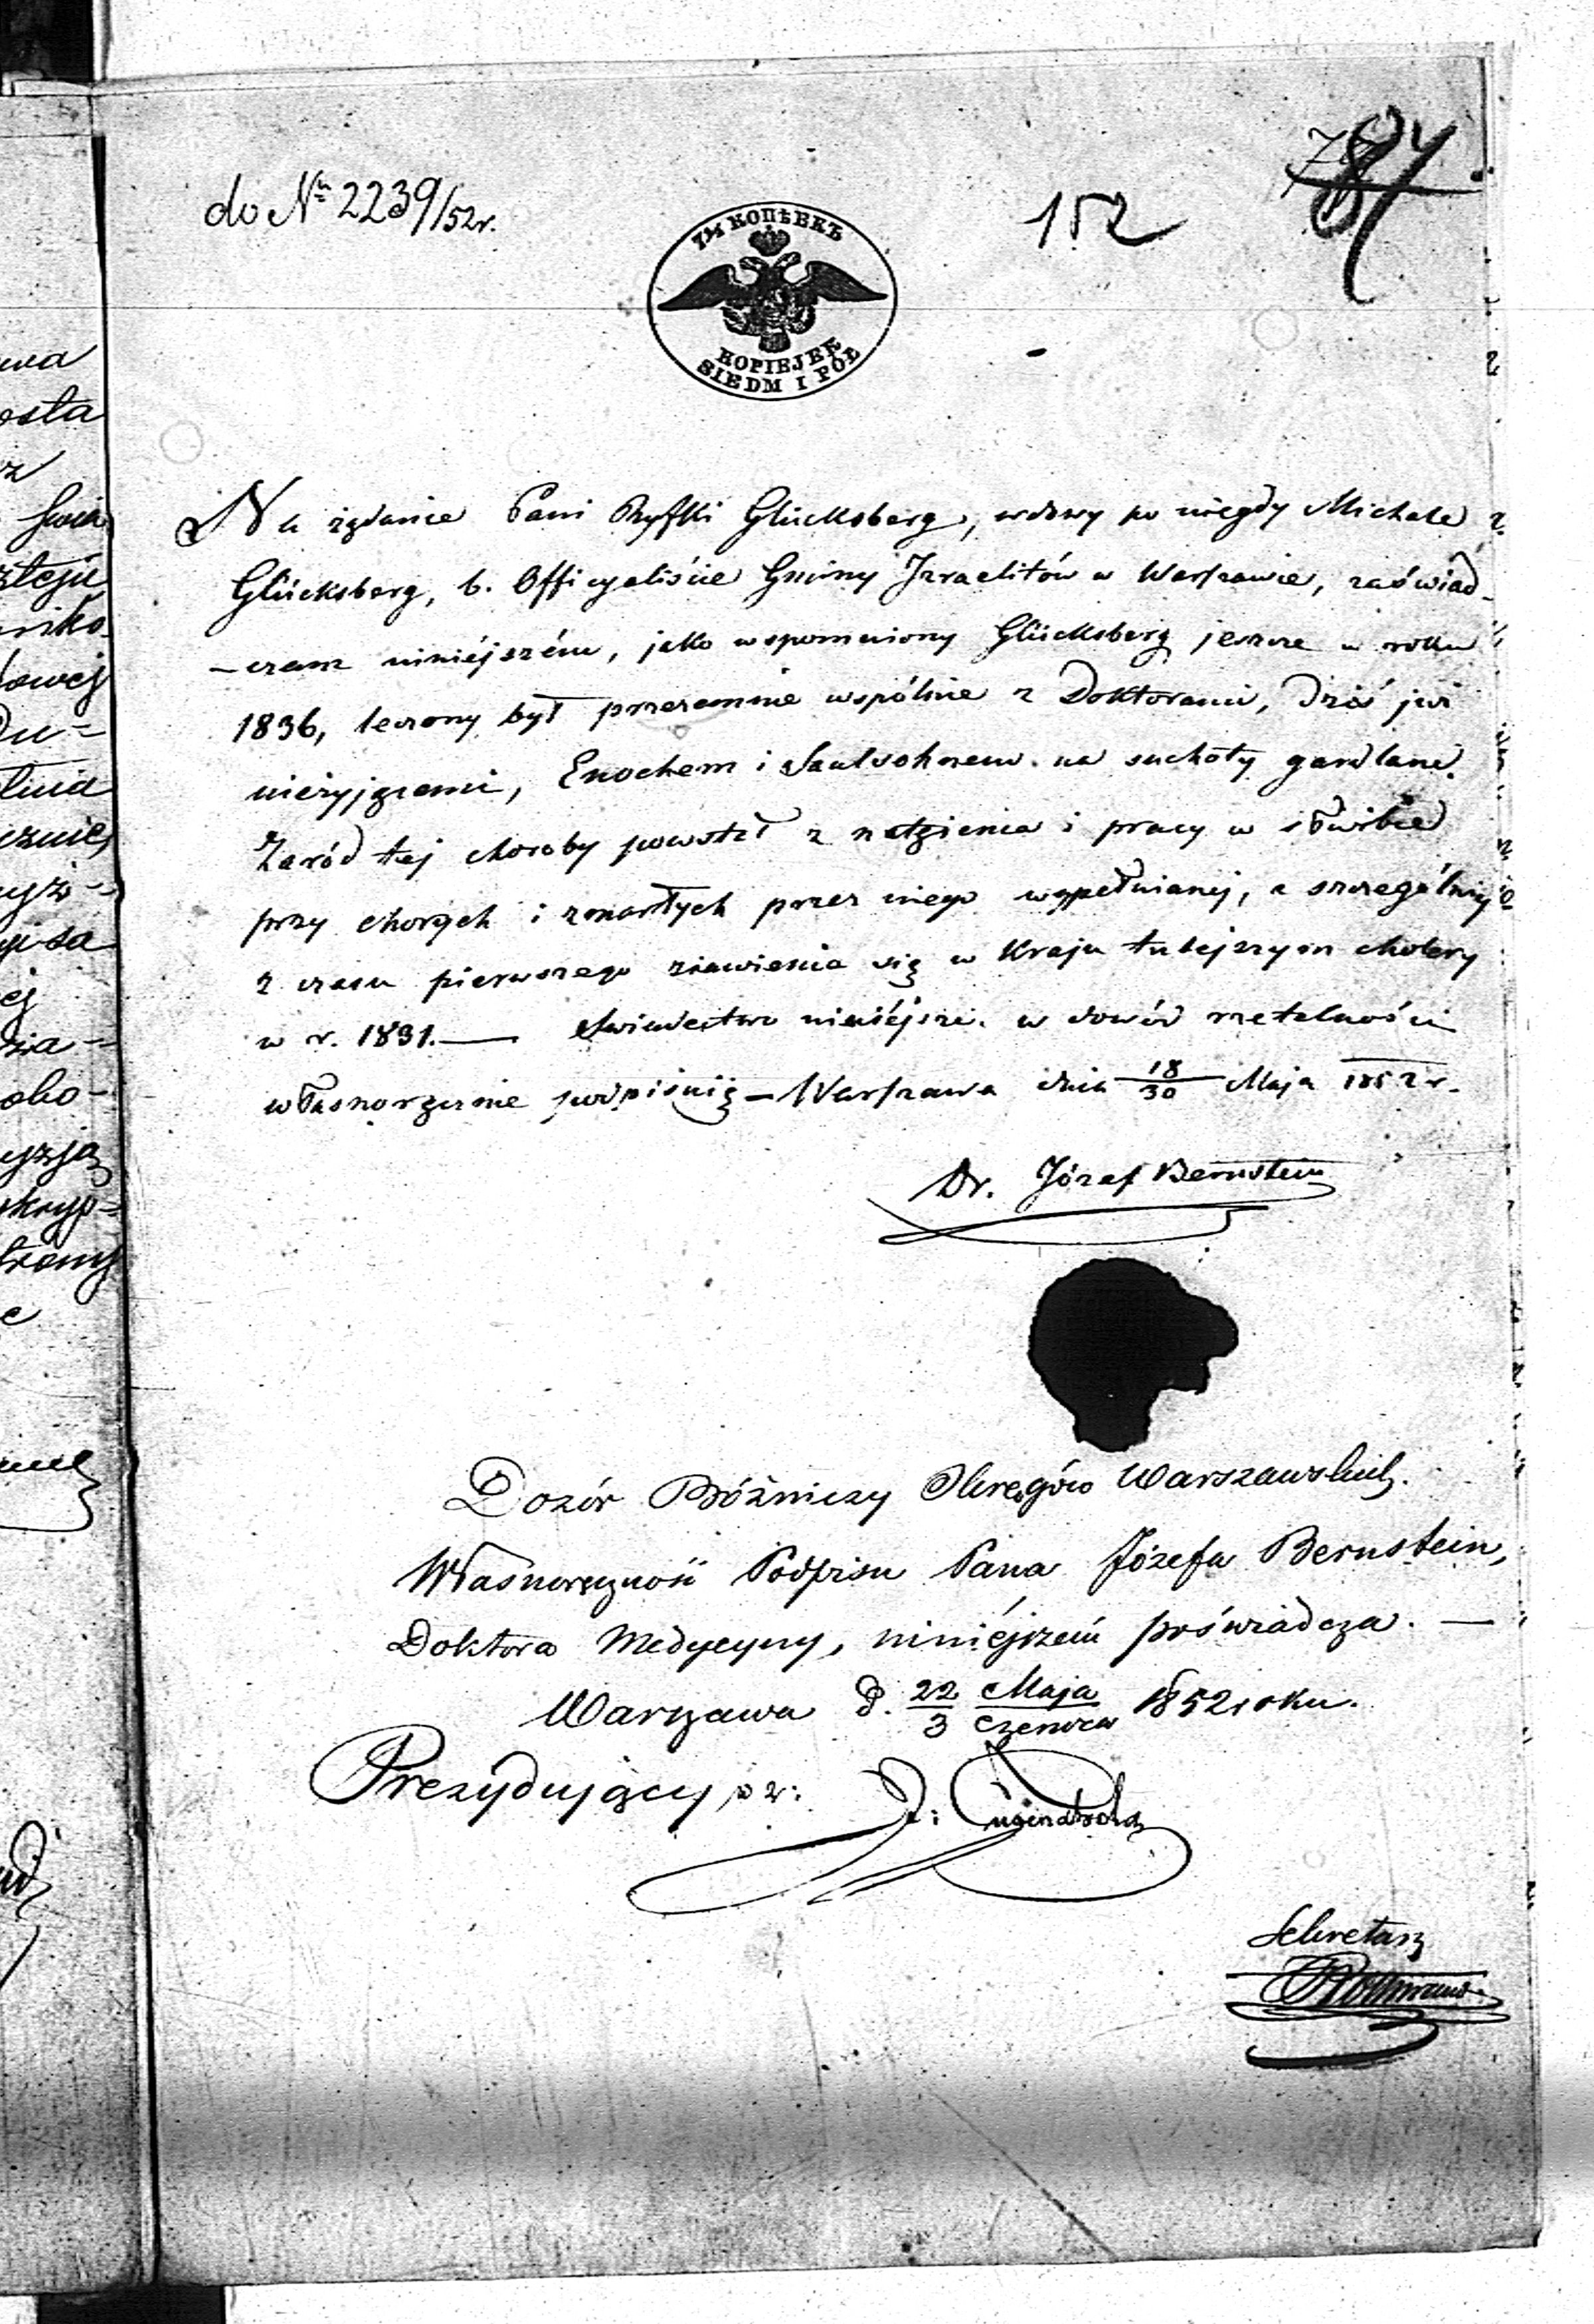 do Nº 2239/52r.
152
84
7½ КОПѢЕКЪ
KOPIEJEK
SIEDM I PÓŁ
Na żądanie Pani Ryfki Glücksberg, wdowy po niegdy Michale
Glücksberg, b. Officyaliście Gminy Izraelitów w Warszawie, zaświad-
-czam niniéjszém, jako wspomniony Glücksberg jeszcze w roku
1836, leczony był przezemnie wspólnie z Doktorami, dziś już
nieżyjącemi, Enochem i Saulsohnem na suchoty gardlane.
Zaród tej choroby powstał z natężenia i pracy w służbie
przy chorych i zmarłych przez niego wypełnianej, a szczególniej
z czasu pierwszego zjawienia się w Kraju tutejszym cholery
w r. 1831. — Świadectwo niniéjsze w dowód rzetelności
własnoręcznie podpisuię — Warszawa dnia 18/30 Maja 1852 r.
Dr. Józef Bernstein
Dozór Bóżniczy Okręgów Warszawskich.
Własnoręczność Podpisu Pana Józefa Bernstein,
Doktora Medycyny, niniéjszém poświadcza. —
Warszawa d. 22 Maja/3 Czerwca 1852 roku.
Prezydujący, z:
J: Tugendhold
Sekretarz